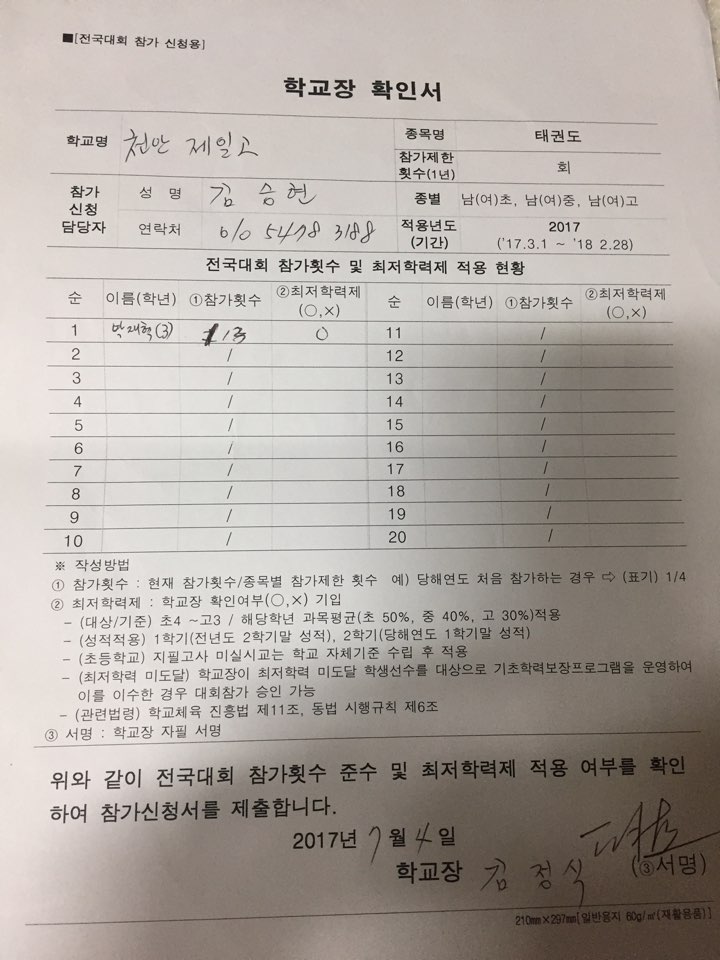 ■[전국대회 참가 신청용]
학교장 확인서
학교명 천안 제일고 종목명 태권도
참가제한 횟수(1년) 회
참가 신청 담당자 성 명 김승현 종별 남(여)초, 남(여)중, 남(여)고
연락처 010 5478 3188 적용년도 (기간) 2017 ('17.3.1 ~ '18 2.28)
전국대회 참가횟수 및 최저학력제 적용 현황
순 이름(학년) ①참가횟수 ②최저학력제 (○,×) 순 이름(학년) ①참가횟수 ②최저학력제 (○,×)
1 박재혁(3) /3 ○ 11 /
2 / 12 /
3 / 13 /
4 / 14 /
5 / 15 /
6 / 16 /
7 / 17 /
8 / 18 /
9 / 19 /
10 / 20 /
※ 작성방법
① 참가횟수 : 현재 참가횟수/종목별 참가제한 횟수 예) 당해연도 처음 참가하는 경우 ⇨ (표기) 1/4
② 최저학력제 : 학교장 확인여부(○,×) 기입
– (대상/기준) 초4 ~고3 / 해당학년 과목평균(초 50%, 중 40%, 고 30%)적용
– (성적적용) 1학기(전년도 2학기말 성적), 2학기(당해연도 1학기말 성적)
– (초등학교) 지필고사 미실시교는 학교 자체기준 수립 후 적용
– (최저학력 미도달) 학교장이 최저학력 미도달 학생선수를 대상으로 기초학력보장프로그램을 운영하여
이를 이수한 경우 대회참가 승인 가능
– (관련법령) 학교체육 진흥법 제11조, 동법 시행규칙 제6조
③ 서명 : 학교장 자필 서명
위와 같이 전국대회 참가횟수 준수 및 최저학력제 적용 여부를 확인
하여 참가신청서를 제출합니다.
2017년 7월 4일
학교장 김정식 (③서명)
210㎜×297㎜[일반용지 60g/㎡(재활용품)]